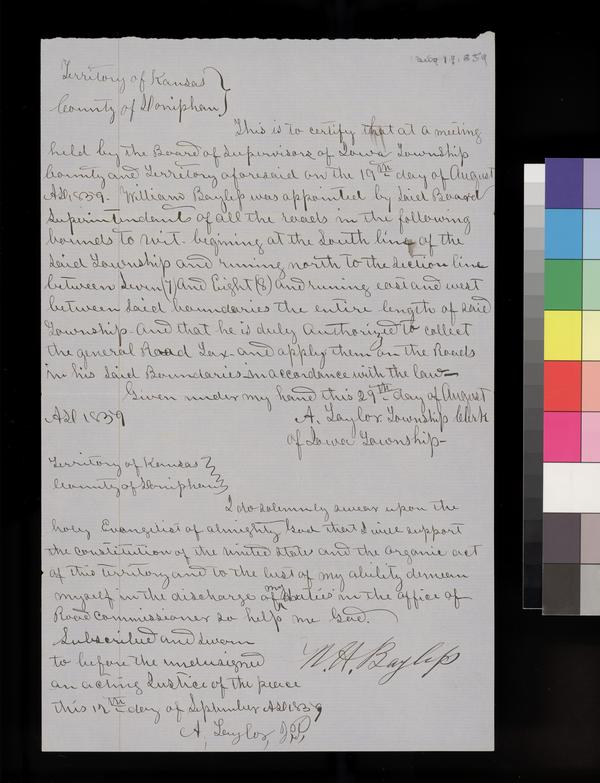 Aug 19, 1859
Territory of Kansas }
County of Doniphan }
This is to certify that at a meeting
held by the Board of Supervisors of Iowa Township
County and Territory aforesaid on the 19th day of August
AD 1859. William Baylep was appointed by Said Board
Superintendant of all the roads in the following
bounds to wit. begining at the South line of the
Said Township and runing north to the section line
between Seven (7) and Eight (8) and runing east and west
between Said boundaries the entire length of said
Township and that he is duly Authorized to collect
the general Road Tax and apply them on the Roads
in his Said Boundaries in accordance with the law
Given under my hand this 29th day of August
AD 1859 A. Taylor Township Clerk
of Iowa Township
Territory of Kansas }
County of Doniphan }
I do solemnly swear upon the
holy Evangelist of almighty God that I will support
the constitution of the United States and the organic act
of this territory and to the best of my ability demean
myself in the discharge of my duties in the office of
Road commissioner so help me God.
Subscribed and sworn
to before the undersigned W. H. Baylep
an acting Justice of the peace
this 12th day of September AD 1859
A, Taylor, J.P,